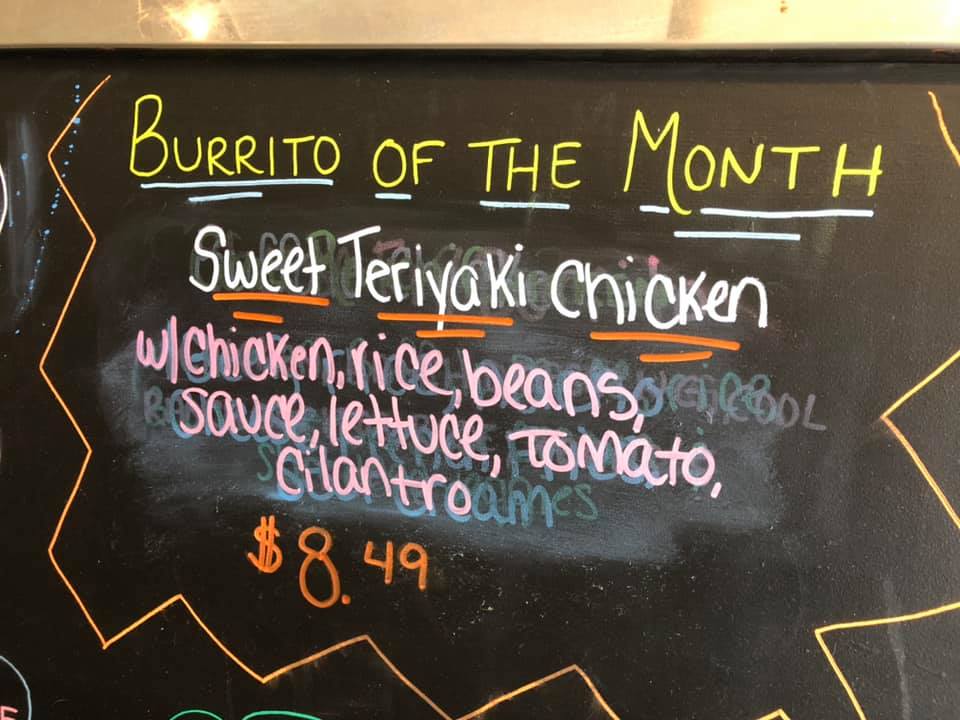 BURRITO OF THE MONTH
Sweet Teriyaki Chicken
w/Chicken, rice, beans,
sauce, lettuce, Tomato,
Cilantro
$8.49